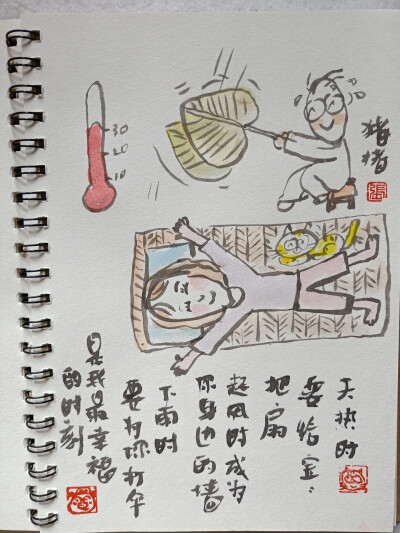 30
20
10
猪猪
張
天热时
要给宝:
把扇
起风时成为
你身边的墙
下雨时
要为你打伞
是我最幸福
的时刻